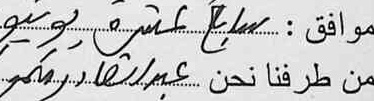 موافق : سابع عشرة يونيو
من طرفنا نحن عبدالقادر